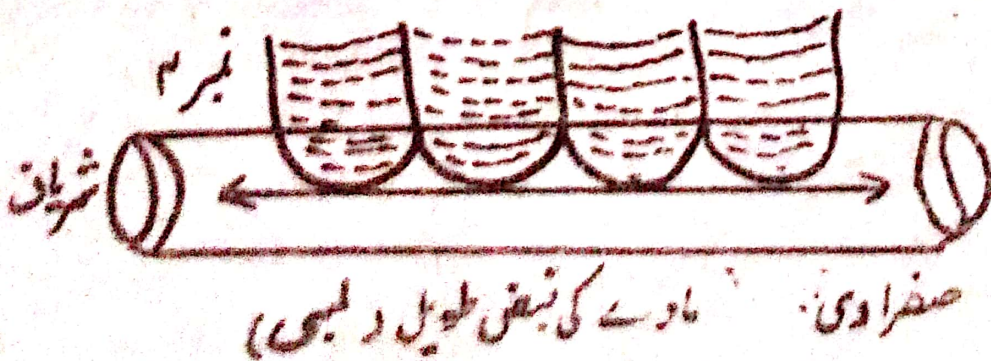 نمبر ۳
شریان
صفراوی مادے کی نبض طویل (لمبی)